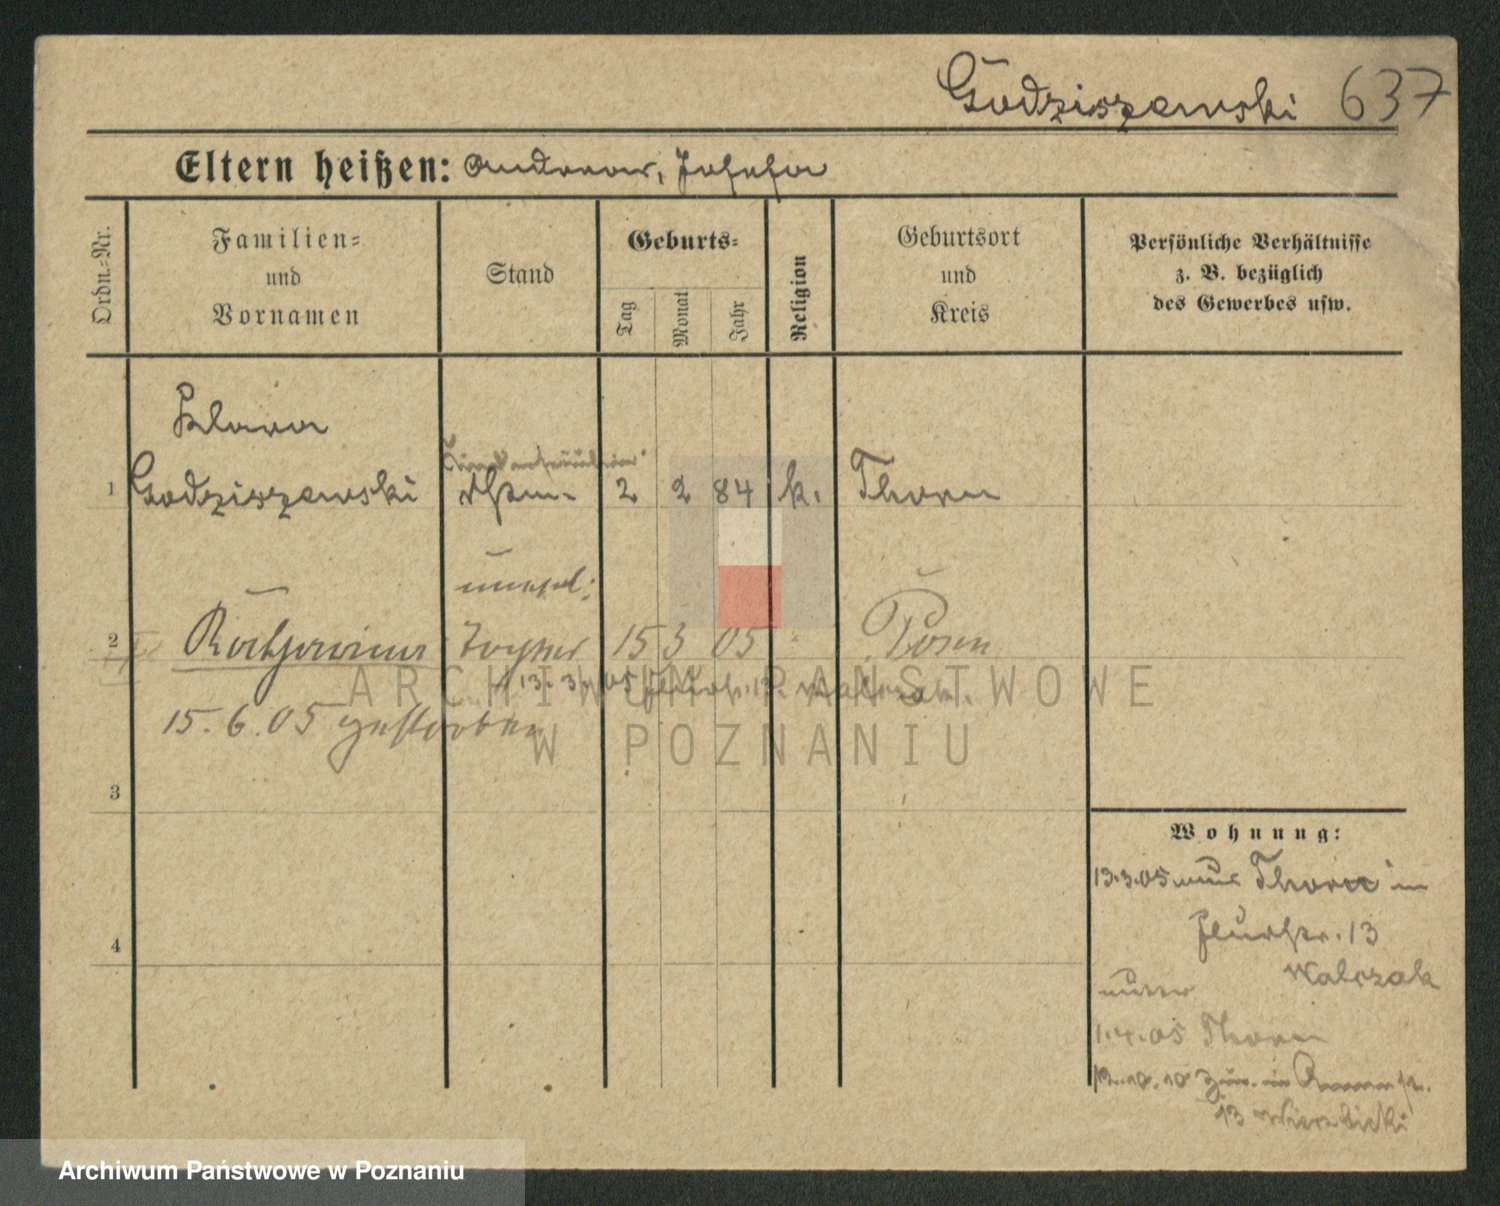 Godziszewski 637
Eltern heißen: Andreas, Josefa
Ordn.-Nr.
Familien-
und
Vornamen
Stand
Geburts-
Tag
Monat
Jahr
Religion
Geburtsort
und
Kreis
Persönliche Verhältnisse
z. B. bezüglich
des Gewerbes usw.
Klara
1 Godziszewski 2 2 84 k. Thorn
unehel.
2 Katharina Tochter 15 3 05 Posen
13. 3. 05 Flurstr. 13 Walczak.
15. 6. 05 gestorben
3
4
Wohnung:
13.3.05 aus Thorn in
Flurstr. 13
Walczak
1.4.05 Thorn
13 Wierzbicki
ARCHIWUM PAŃSTWOWE
W POZNANIU
Archiwum Państwowe w Poznaniu